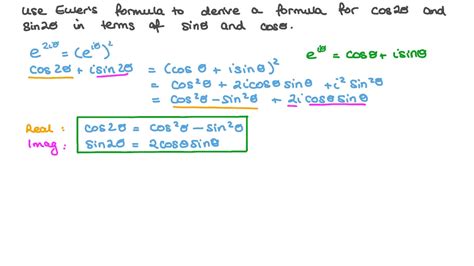 Use Euler's formula to derive a formula for cos2θ and
sin2θ in terms of sinθ and cosθ.
e^{2iθ} = (e^{iθ})²
e^{iθ} = cosθ + isinθ
cos2θ + isin2θ = (cosθ + isinθ)²
= cos²θ + 2icosθsinθ + i²sin²θ
= cos²θ - sin²θ + 2icosθsinθ
Real: cos2θ = cos²θ - sin²θ
Imag: sin2θ = 2cosθsinθ